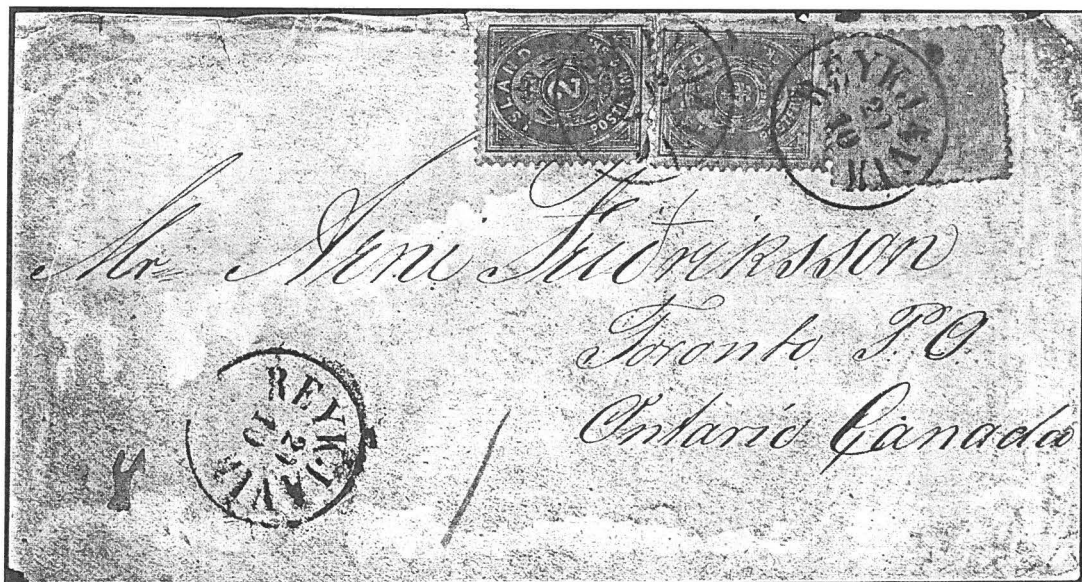 ISLAND
REYKJAVIK
21
10
Mr= Arni Friðriksson
Toronto P.O.
Ontario Canada
REYKJAVIK
21
10